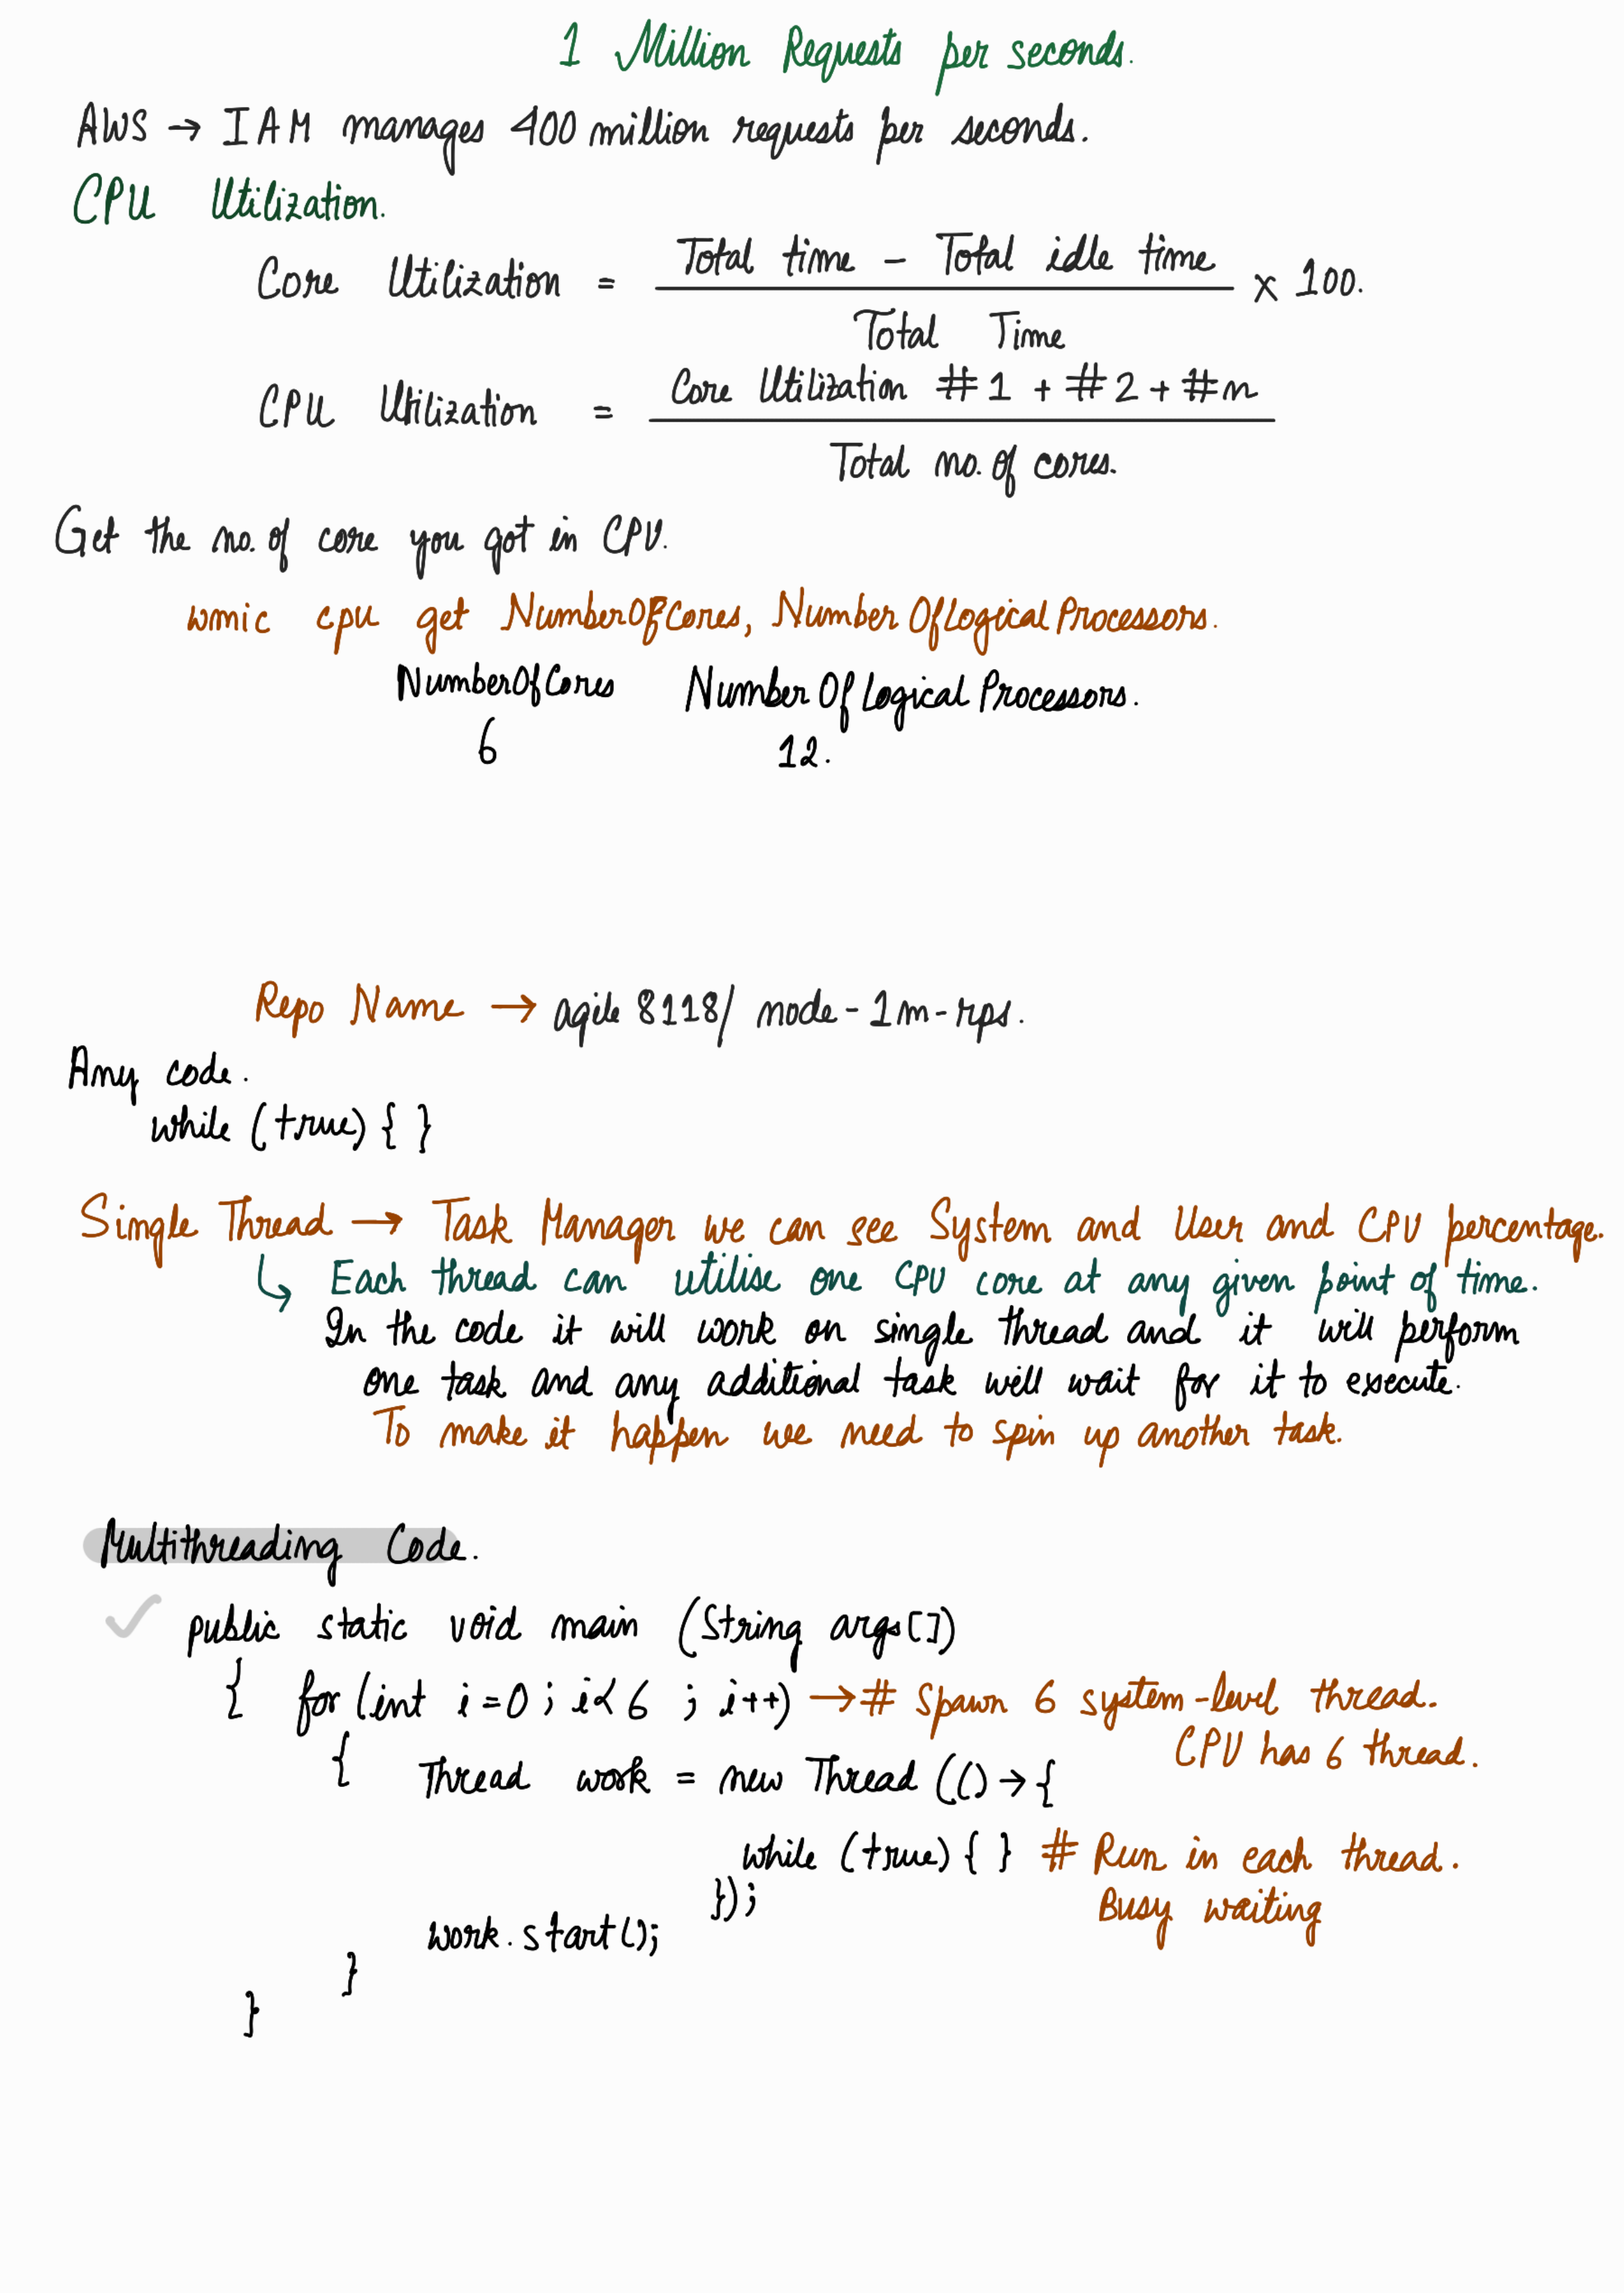 1 Million Requests per seconds.
AWS → IAM manages 400 million requests per seconds.
CPU Utilization.
Core Utilization = Total time - Total idle time x 100.
Total Time
CPU Utilization = Core Utilization #1 + #2 + #n
Total no. of cores.
Get the no. of core you got in CPU.
wmic cpu get NumberOfCores, NumberOfLogicalProcessors.
NumberOfCores NumberOfLogicalProcessors.
6 12.
Repo Name → agile8118/node-1m-rps.
Any code.
while (true) { }
Single Thread → Task Manager we can see System and User and CPU percentage.
↳ Each thread can utilise one CPU core at any given point of time.
In the code it will work on single thread and it will perform
one task and any additional task will wait for it to execute.
To make it happen we need to spin up another task.
Multithreading Code.
✓ public static void main (String args[])
{ for (int i=0; i<6 ; i++) → # Spawn 6 system-level thread.
CPU has 6 thread.
{ Thread work = new Thread (() → {
while (true) { } # Run in each thread.
}); Busy waiting
work.start();
}
}